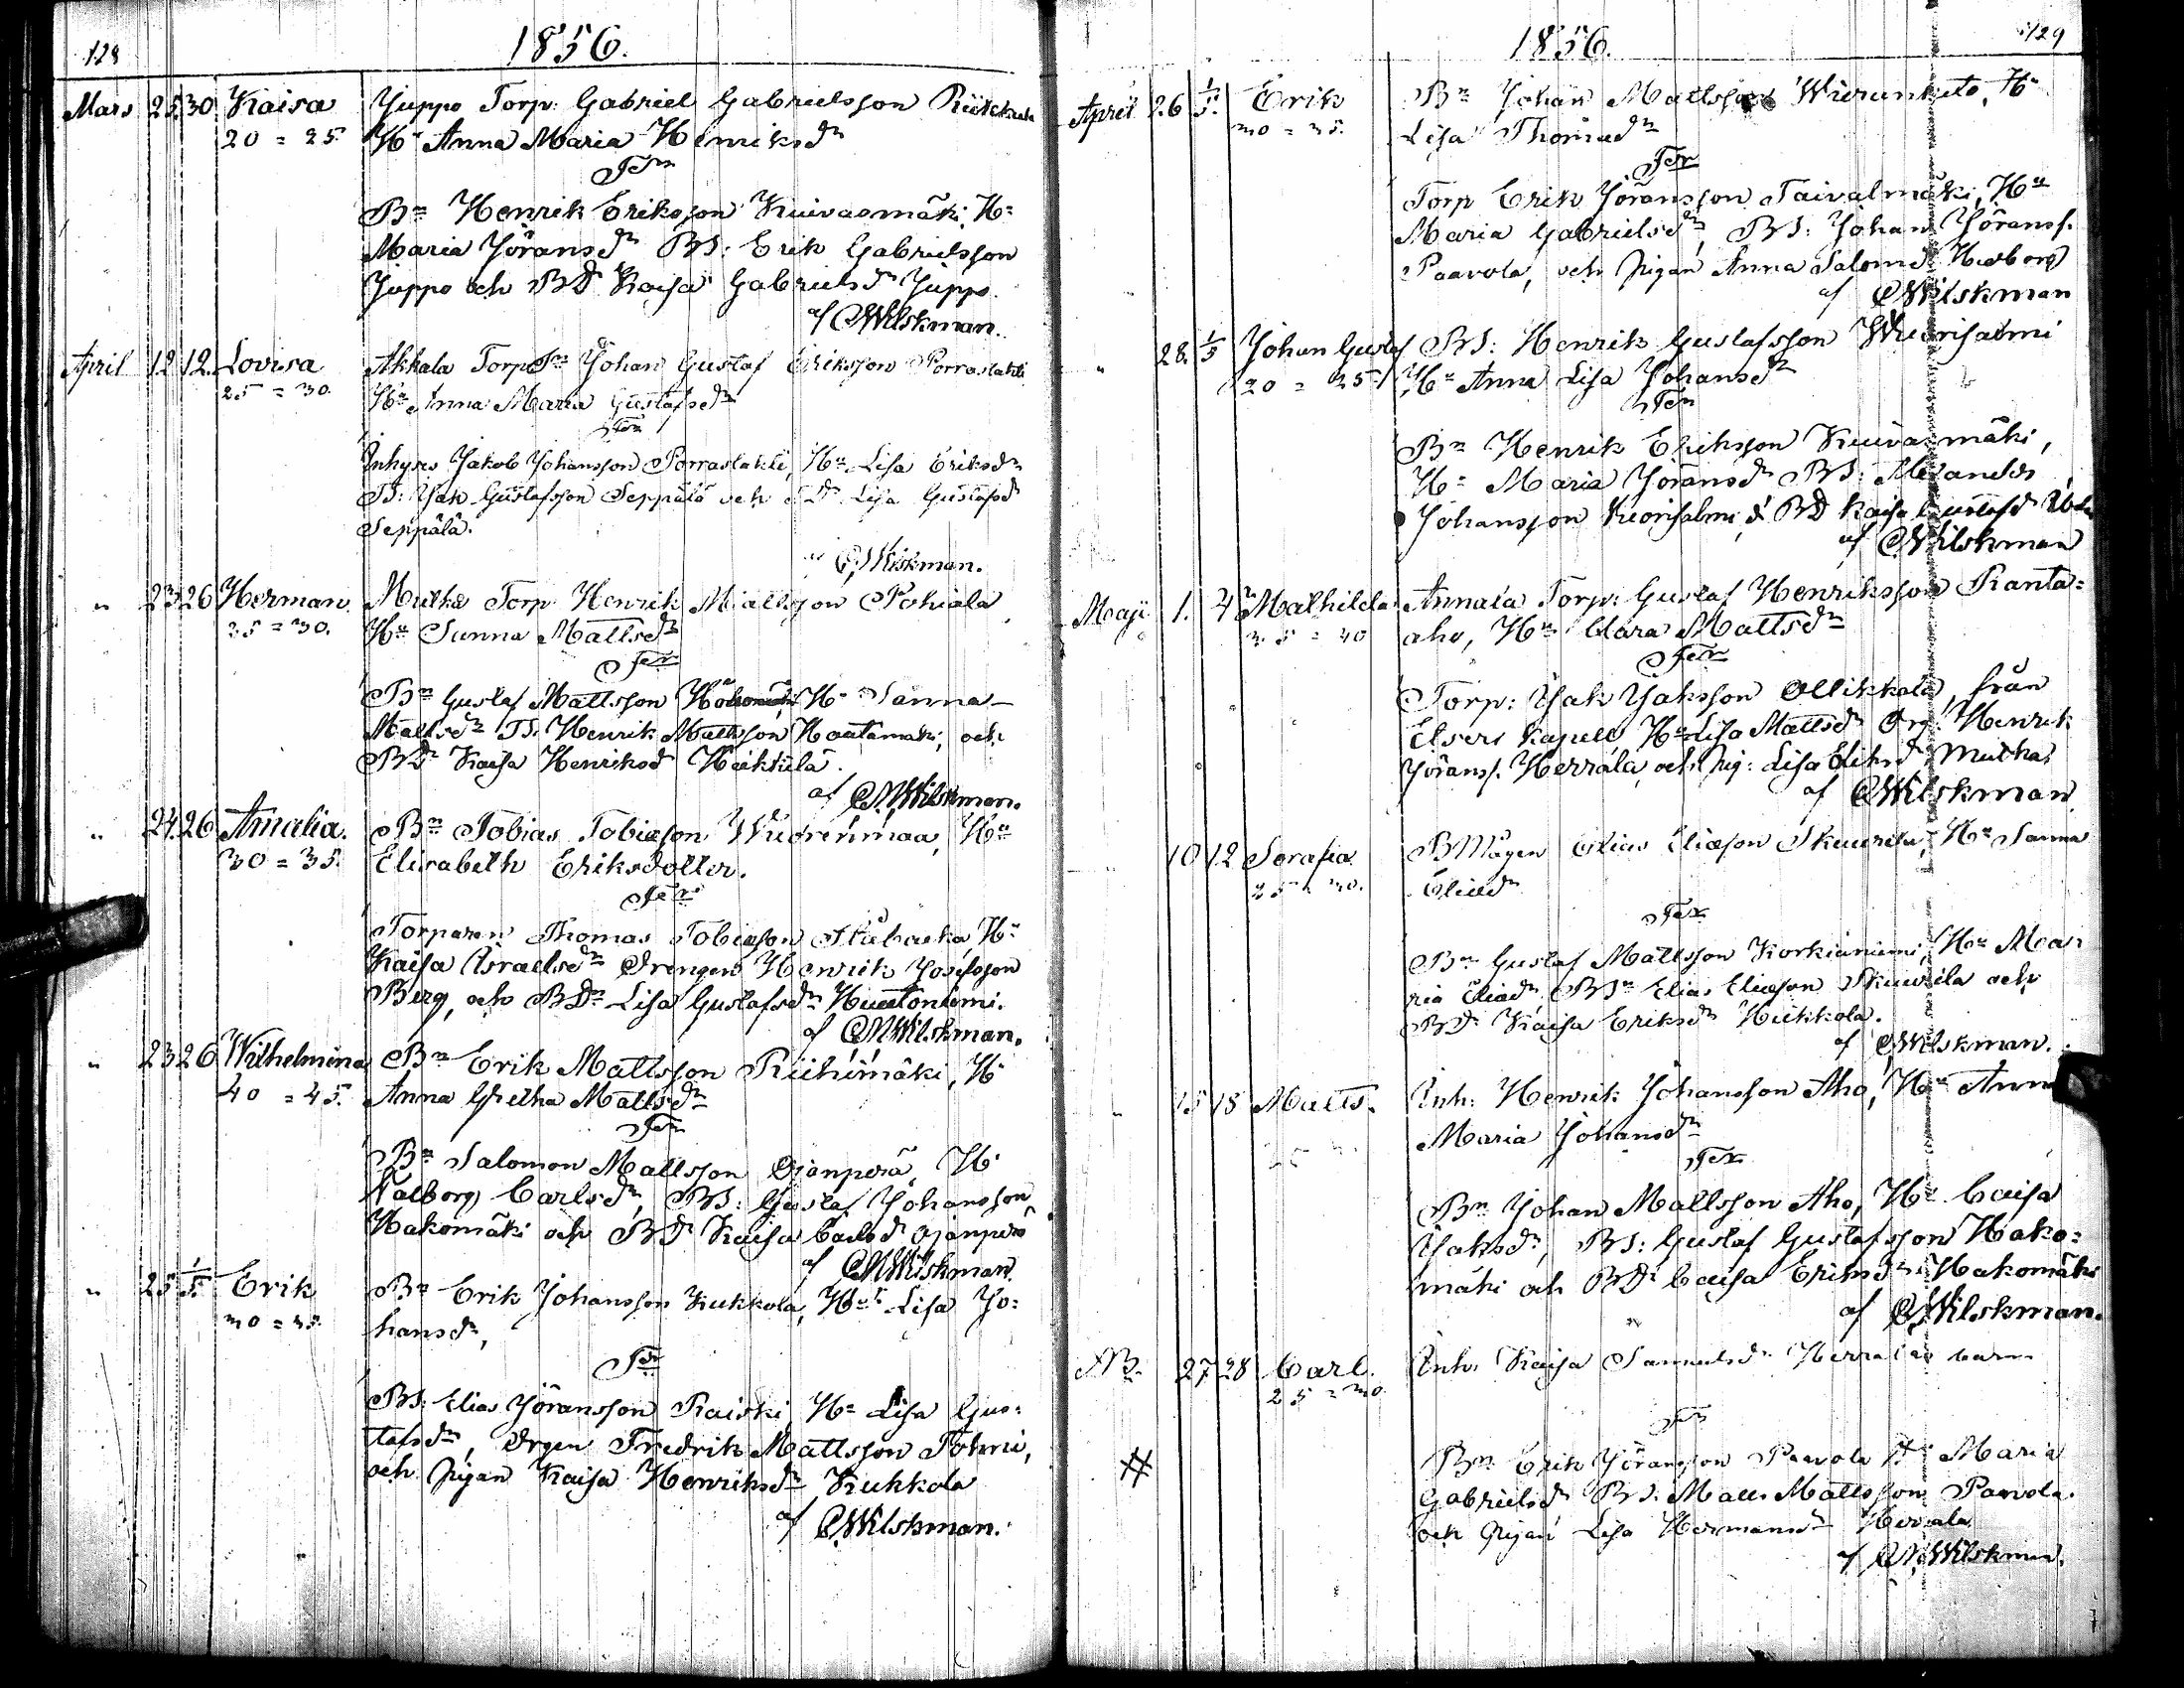 128
1856.
Mars 25. 30. Kaisa Juppo Torp: Gabriel Gabrielsson
20 = 25. Hu Anna Maria Henriksdr
Ter
Bn Henrik Eriksson Kuivasmäki, Hu
Maria Jöransdr BS: Erik Gabrielsson
Juppo och BDr Kaisa Gabrielsdr Juppo.
af CWilskman.
April 12 12. Lovisa Akkala Torp Johan Gustaf Eriksson Porraslahti
25 = 30. Hu Anna Maria Gustafsdr
Ter
Inhyses Jakob Johansson Porraslahti, Hu Lisa Eriksdr
Jak Gustafsson Seppälä och Dr Lisa Gustafsdr
Seppälä.
CWilskman.
" 23 26 Herman. Torp Henrik Mattsson Pohiala
25 = 30. Hu Sanna Mattsdr
Ter
Bn Gustaf Mattsson Hu Sanna
Mattsdr Henrik Mattsson och
BDr Kaisa Henriksdr Heikkilä.
af CWilskman.
" 24. 26 Amalia. Bn Tobias Tobiasson Wuorenmaa, Hu
30 = 35. Elisabeth Eriksdotter.
Ter
Torparen Thomas Tobiasson Hu
Kaisa Israelsdr Drengen Henrik Josefsson
Berg, och BDr Lisa Gustafsdr Huuttoniemi.
af CWilskman.
" 23 26 Wilhelmina Bn Erik Mattsson Riihimäki, Hu
40 = 45. Anna Gretha Mattsdr
Ter
Bn Salomon Mattsson Ojanperä, Hu
Valborg Carlsdr, BS: Gustaf Johansson
Hakomäki och BDr Kaisa Carlsdr Ojanperä
af CWilskman.
" 25 1/5 Erik Bn Erik Johansson Kukkola, Hu Lisa Jo=
30 = 35. hansdr,
Ter
BS: Elias Jöransson Raiski, Hu Lisa Gus=
tafsdr, Drgen Fredrik Mattsson
och Pigan Kaisa Henriksdr Kukkola
af CWilskman.
1856.
129
April 26 1/5. Erik Bn Johan Mattsson Hu
30 = 35. Lisa Thomasdr
Ter
Torp Erik Jöransson Taivalmäki, Hu
Maria Gabrielsdr, BS: Johan Jöranss.
Paavola, och Pigan Anna Salome
af CWilskman
" 28. 1/5 Johan Gustaf BS: Henrik Gustafsson Wuorisalmi
20 = 25. Hu Anna Lisa Johansdr
Ter
Bn Henrik Eriksson Kuivasmäki,
Hu Maria Jöransdr BS: Alexander
Johansson Kuorisalmi & BD Kaisa Gustafsdr
af CWilskman
Maji 1. 4 Mathilda Annala Torp: Gustaf Henriksson Ranta=
35 = 40 aho, Hu Clara Mattsdr
Ter
Torp: Jak Jaksson Ollikkala, från
Etseri Kapell Hu Lisa Mattsdr Drg: Henrik
Jöranss. Herrala och Pig: Lisa
af CWilskman
10 12 Serafia Elias Eliasson Skuurila, Hu Sanna
25 = 30. Eliasdr
Ter
Bn Gustaf Mattsson Korkianiemi, Hu Ma=
ria Eliasdr, BSn Elias Eliasson Skuurila och
BDr Kaisa Eriksdr Heikkola.
af CWilskman.
15 18 Matts. Inh: Henrik Johansson Aho, Hu Anna
Maria Johansdr
Ter
Bn Johan Mattsson Aho, Hu Caisa
Jaksdr, BS: Gustaf Gustafsson Hako=
mäki och BDr Caisa Eriksdr Hakomäki
af CWilskman.
NB. 27 28 Carl. Inh. Kaisa Samuelsdr Herrala
25 = 30.
Ter
Bn Erik Jöransson Pavola Hu Maria
Gabrielsdr BS. Matts Mattsson Pavola
och Pigan Lisa Hermansdr Herrala
af CWilskman.